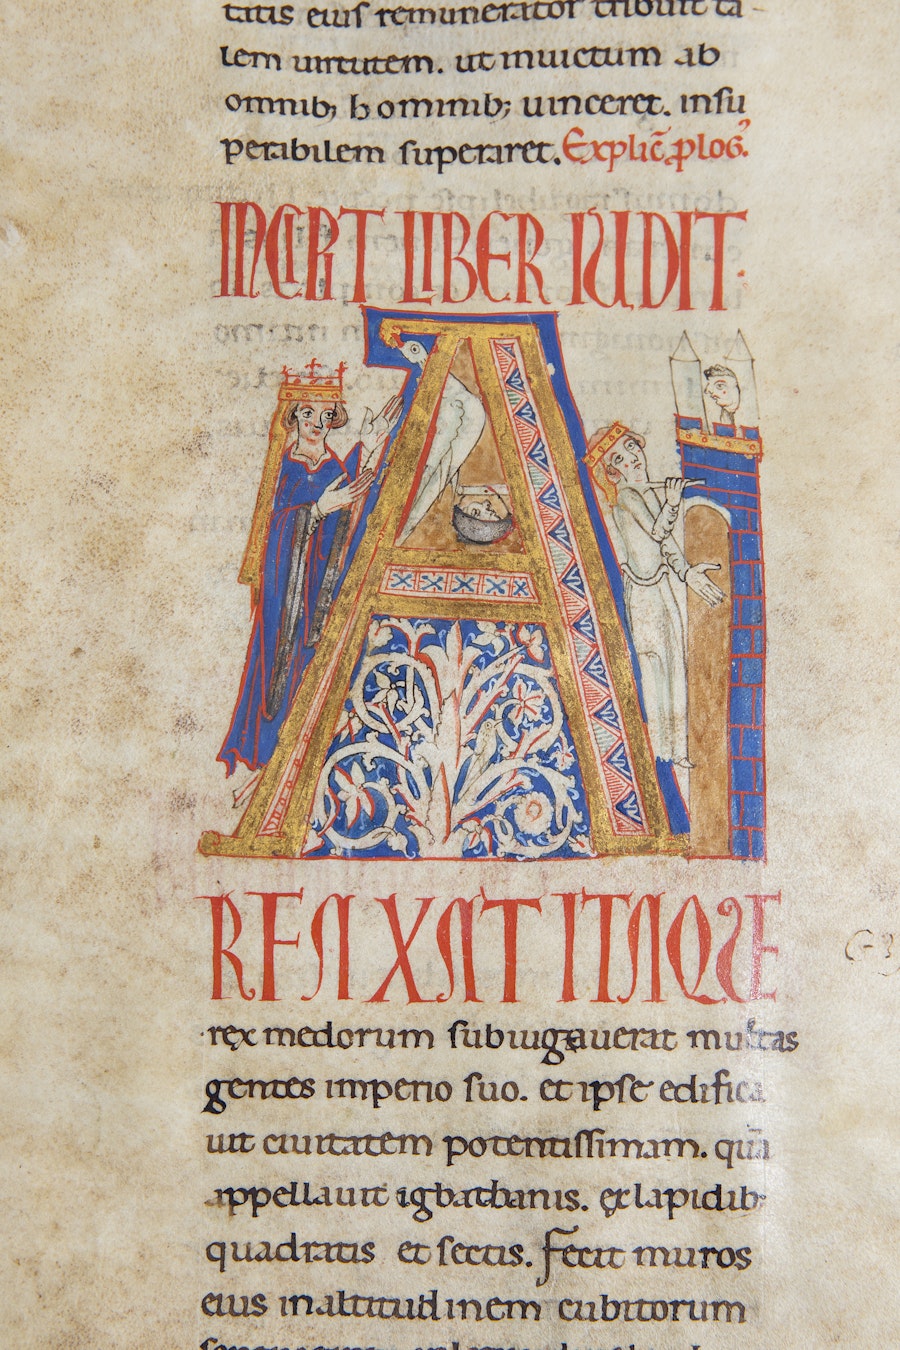 titis eius remunerator tribuit ta-
lem uirtutem. ut inuictum ab
omnib; hominib; uinceret. insu
perabilem superaret. Explic̄ ꝓlog̕.
INCIPIT LIBER IUDIT.
A
RFAXAT ITAQUE
rex medorum subiugauerat multas
gentes imperio suo. et ipse edifica
uit ciuitatem potentissimam. quā
appellauit igbathanis. ex lapidib;
quadratis et sectis. Fecit muros
eius inaltitudinem cubitorum